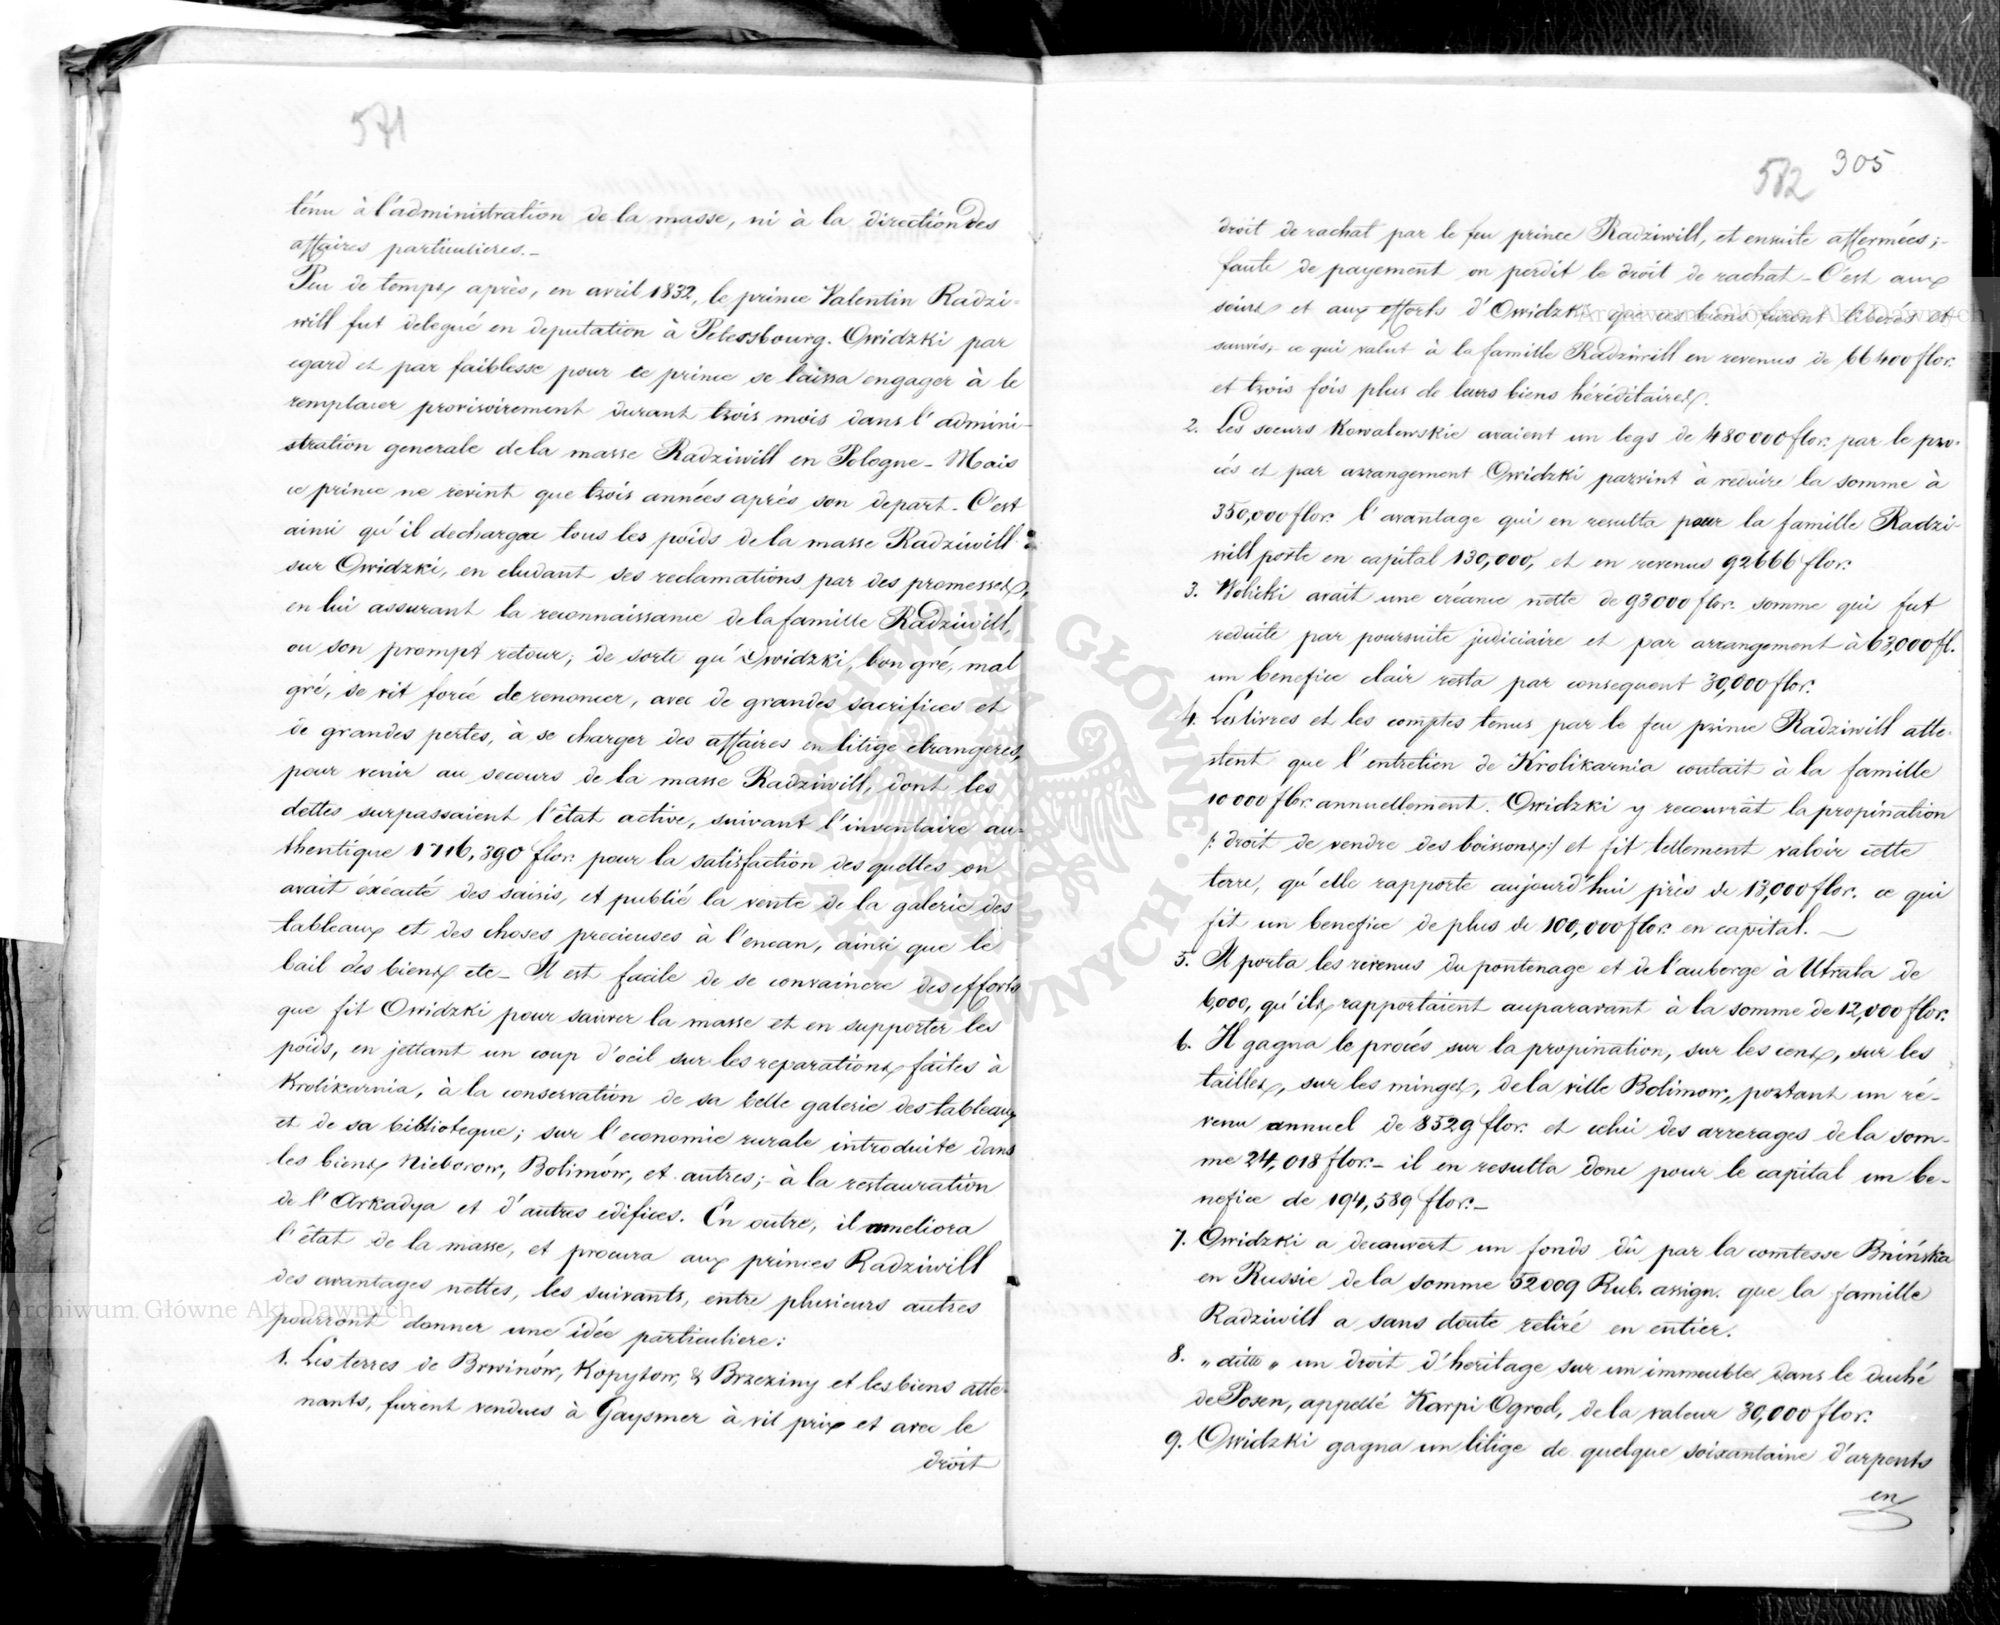 571
tenu à l'administration de la masse, ni à la direction des
affaires particulieres.-
Peu de temps après, en avril 1832, le prince Valentin Radzi-
will fut delegué en deputation à Petersbourg. Owidzki par
egard et par faiblesse pour ce prince se laissa engager à le
remplacer provisoirement durant trois mois dans l'admini-
stration generale de la masse Radziwill en Pologne - Mais
ce prince ne revint que trois années après son depart. C'est
ainsi qu'il dechargea tous les poids de la masse Radziwill
sur Owidzki, en eludant ses reclamations par des promesses,
en lui assurant la reconnaissance de la famille Radziwill,
ou son prompt retour; de sorte qu'Owidzki, bon gré, mal
gré, se vit forcé de renoncer, avec de grandes sacrifices et
de grandes pertes, à se charger des affaires en litige etrangeres,
pour venir au secours de la masse Radziwill, dont les
dettes surpassaient l'état active, suivant l'inventaire au-
thentique 1716,390 flor. pour la satisfaction des quelles on
avait éxécuté des saisis, et publié la vente de la galerie des
tableaux et des choses precieuses à l'encan, ainsi que le
bail des biens etc - Il est facile de se convaincre des efforts
que fit Owidzki pour sauver la masse et en supporter les
poids, en jettant un coup d'oeil sur les reparations faites à
Krolikarnia, à la conservation de sa belle galerie des tableaux
et de sa biblioteque; sur l'economie rurale introduite dans
les biens Nieborow, Bolimów, et autres; à la restauration
de l'Arkadya et d'autres edifices. En outre, il ameliora
l'état de la masse, et procura aux princes Radziwill
des avantages nettes, les suivants, entre plusieurs autres
pourront donner une idée particuliere:
1. Les terres de Brwinów, Kopytow, & Brzeziny et les biens atte-
nants, furent vendues à Gaysmer à vil prix et avec le
droit
582 305
droit de rachat par le feu prince Radziwill, et ensuite affermées;-
faute de payement on perdit le droit de rachat - C'est aux
soins et aux efforts d'Owidzki que ces biens furent liberés et
sauvés, ce qui valut à la famille Radziwill en revenus de 66400 flor.
et trois fois plus de leurs biens héréditaires.
2. Les soeurs Kowalewskie avaient un legs de 480000 flor. par le pro-
cés et par arrangement Owidzki parvint à reduire la somme à
350,000 flor. l'avantage qui en resulta pour la famille Radzi-
will porte en capital 130,000, et en revenus 92666 flor.
3. Wolicki avait une créance nette de 93000 flor. somme qui fut
reduite par poursuite judiciaire et par arrangement à 63,000 fl.
un benefice clair resta par consequent 30,000 flor.
4. Les livres et les comptes tenus par le feu prince Radziwill atte-
stent que l'entretien de Krolikarnia coutait à la famille
10000 flor. annuellement. Owidzki y recouvrat la propination
/: droit de vendre des boissons:/ et fit tellement valoir cette
terre, qu'elle rapporte aujourd'hui près de 13,000 flor. ce qui
fit un benefice de plus de 100,000 flor. en capital. -
5. Il porta les revenus du pontenage et de l'auberge à Utrata de
6,000, qu'ils rapportaient auparavant à la somme de 12,000 flor.
6. Il gagna le procés sur la propination, sur les cens, sur les
tailles, sur les minges, de la ville Bolimow, portant un ré-
venu annuel de 8529 flor. et celui des arrerages de la som-
me 24,018 flor. - il en resulta donc pour le capital un be-
nefice de 194,589 flor. -
7. Owidzki a decouvert un fonds dû par la comtesse Bnińska
en Russie de la somme 52009 Rub. assign. que la famille
Radziwill a sans doute retiré en entier.
8. " ditto " un droit d'heritage sur un immeuble dans le duché
de Posen, appellé Karpi Ogrod, de la valeur 30,000 flor.
9. Owidzki gagna un litige de quelque soixantaine d'arpents
en
Archiwum Główne Akt Dawnych
Archiwum Główne Akt Dawnych
ARCHIWUM GŁÓWNE AKT DAWNYCH